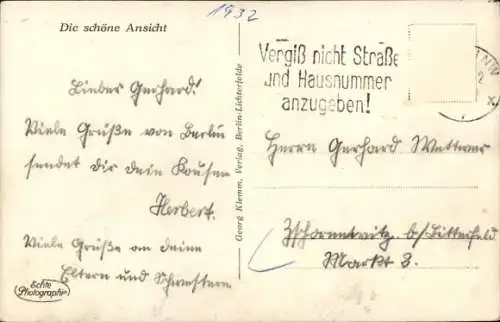 Die schöne Ansicht
1932
Lieber Gerhard!
Viele Grüße von Berlin
sendet Dir dein Kousen
Herbert.
Viele Grüße an deine
Eltern und Schwestern
Echte
Photographie
Georg Klemm, Verlag, Berlin-Lichterfelde
Vergiß nicht Straße
und Hausnummer
anzugeben!
Herrn Gerhard Wettwer
Zschornewitz b/Bitterfeld
Markt 3.